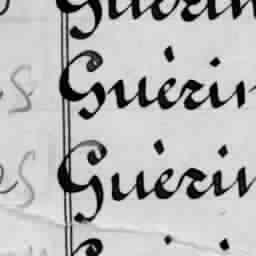 Guérin
es Guérin
es Guérin